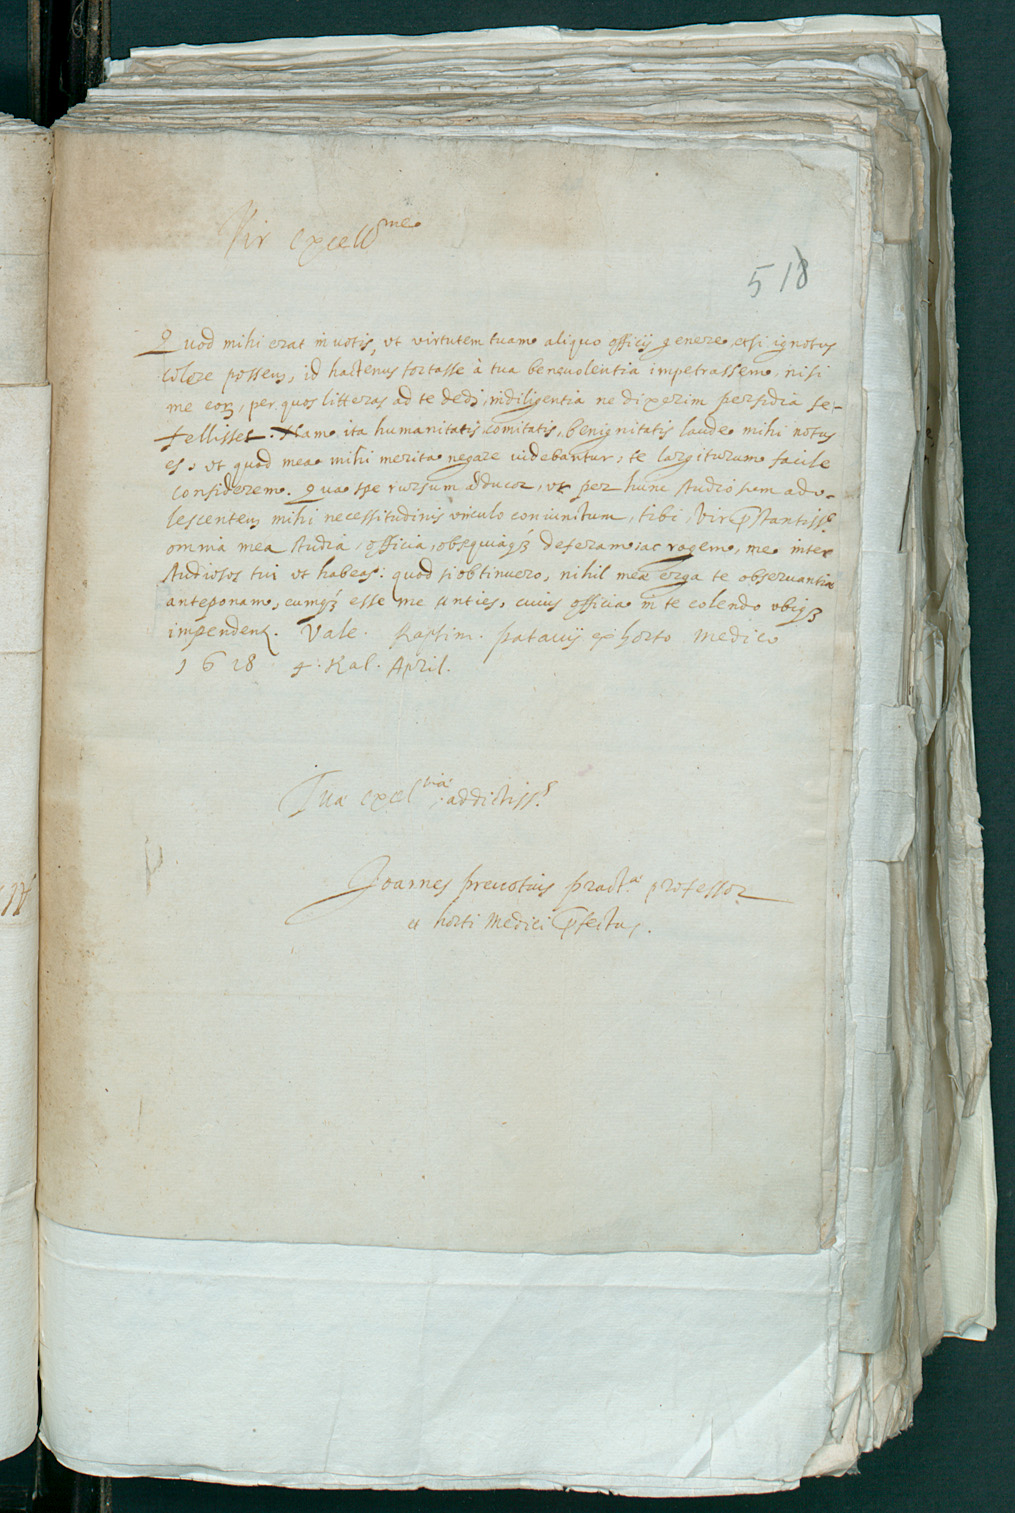 Vir excell.me
518
Quod mihi erat in votis, ut virtutem tuam aliquo officij genere, etsi ignotus
colere possem, id hactenus fortasse à tua benevolentia impetrassem, nisi
me eorum, per quos litteras ad te dedi, indiligentia ne dixerim perfidia fe-
fellisset. Nam ita humanitatis, comitatis, benignitatis laude mihi notus
es, ut quod mea mihi merita negare videbantur, te largiturum facile
considerem. Qua spe rursum adducor, ut per hunc studiosum ado-
lescentem mihi necessitudinis vinculo coniunctum, tibi, Vir pstantiss.e
omnia mea studia, officia, obsequiaq; deferam, ac rogem, me inter
studiosos tui ut habeas: quod si obtinuero, nihil meæ erga te observantiæ
anteponam, eumq; esse me senties, cuius officia in te colendo ubiq;
impendent. Vale. Raptim. Patavij ex horto medico
1628 4. Kal. April.
Tuæ excel.tiæ addictiss.s
Joannes Prevotius pract.æ professor
et horti medici pfectus.